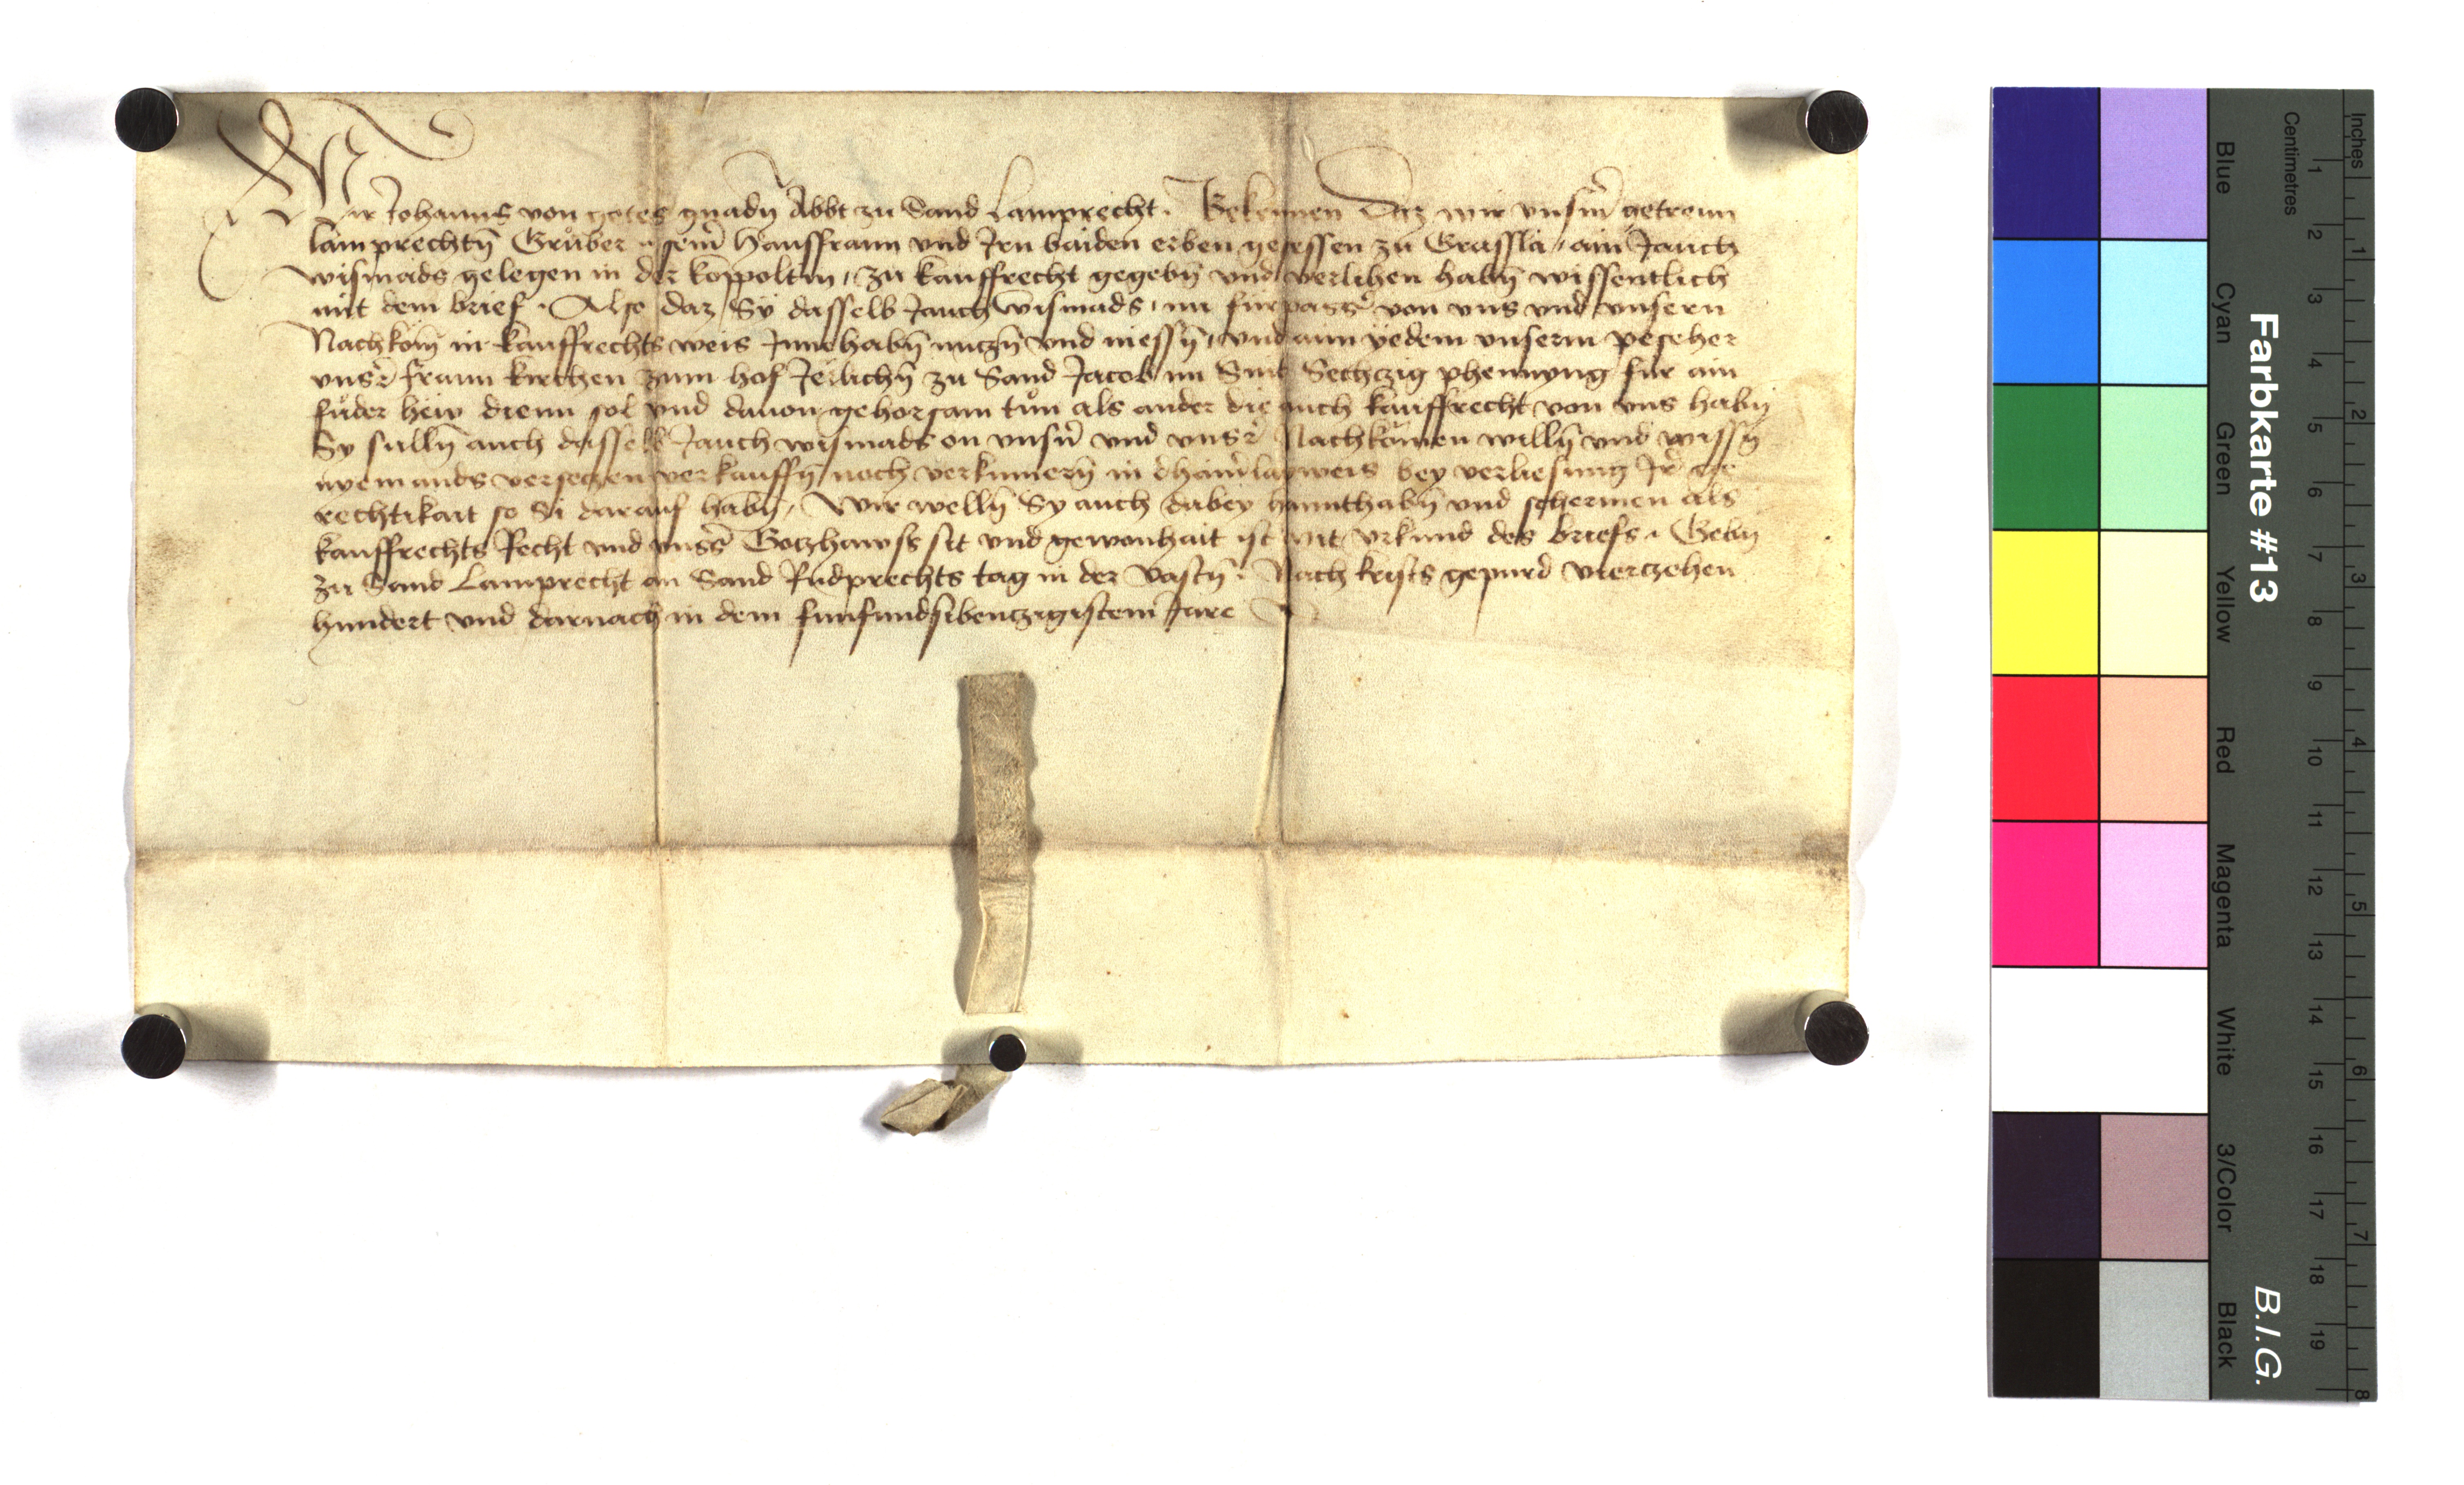 Wir Johanns von gotes gnadn̄ Abbt zu Sand Lamprecht. Bekennen Daz wir vnsm̄ getrenn
lamprechtn̄ Grůber seim̄ Hausfraun vnd Jrn baiden erben gesessen zu Grasslā ain Jauch
wismads gelegen in der koppoltm̄ zu kauffrecht gegebn̄ vnd verlihen habn̄ wissentlich
mit dem brief. Also daz Sÿ dasselb Jauch wismads nu fürpassr̄ von vns vnd vnsern
Nachkom̄ in kauffrechts weis Innehabn̄ nutzn̄ vnd niessn̄ vnd aim yedem vnserm
vnsr̄ fraun kirchen zum hof Jerlichn̄ zu Sand Jacob im Snit Sechtzig phennyng fur ain
fůder hew dienn sol vnd dauon gehorsam tůn als ander die auch kauffrecht von vns habn̄
Sy sulln̄ auch dasselb Jauch wismads on vnsn̄ vnd vnsr̄ Nachkömen willn̄ vnd wissn̄
nyemands versetzen verkauffn̄ noch verkumern̄ in dhainrlay weis bey verliesung Jr̄ ge
rechtikait so Si darauf habn̄, Wir welln̄ Sy auch dabey hannthabn̄ vnd schermen als
kauffrechts Recht vnd vnsr̄ Gotzhawss sit vnd gewonhait ist mit vrkund des briefs. Gebn̄
zu Sand Lamprecht an Sand Rudprechts tag in der Vastn̄. Nach krists gepurd viertzehen
hundert vnd darnach in dem funfundsibentzigistem Jare
Farbkarte #13
B.I.G.
Blue
Cyan
Green
Yellow
Red
Magenta
White
3/Color
Black
Centimetres
1 2 3 4 5 6 7 8 9 10 11 12 13 14 15 16 17 18 19
Inches
1 2 3 4 5 6 7 8